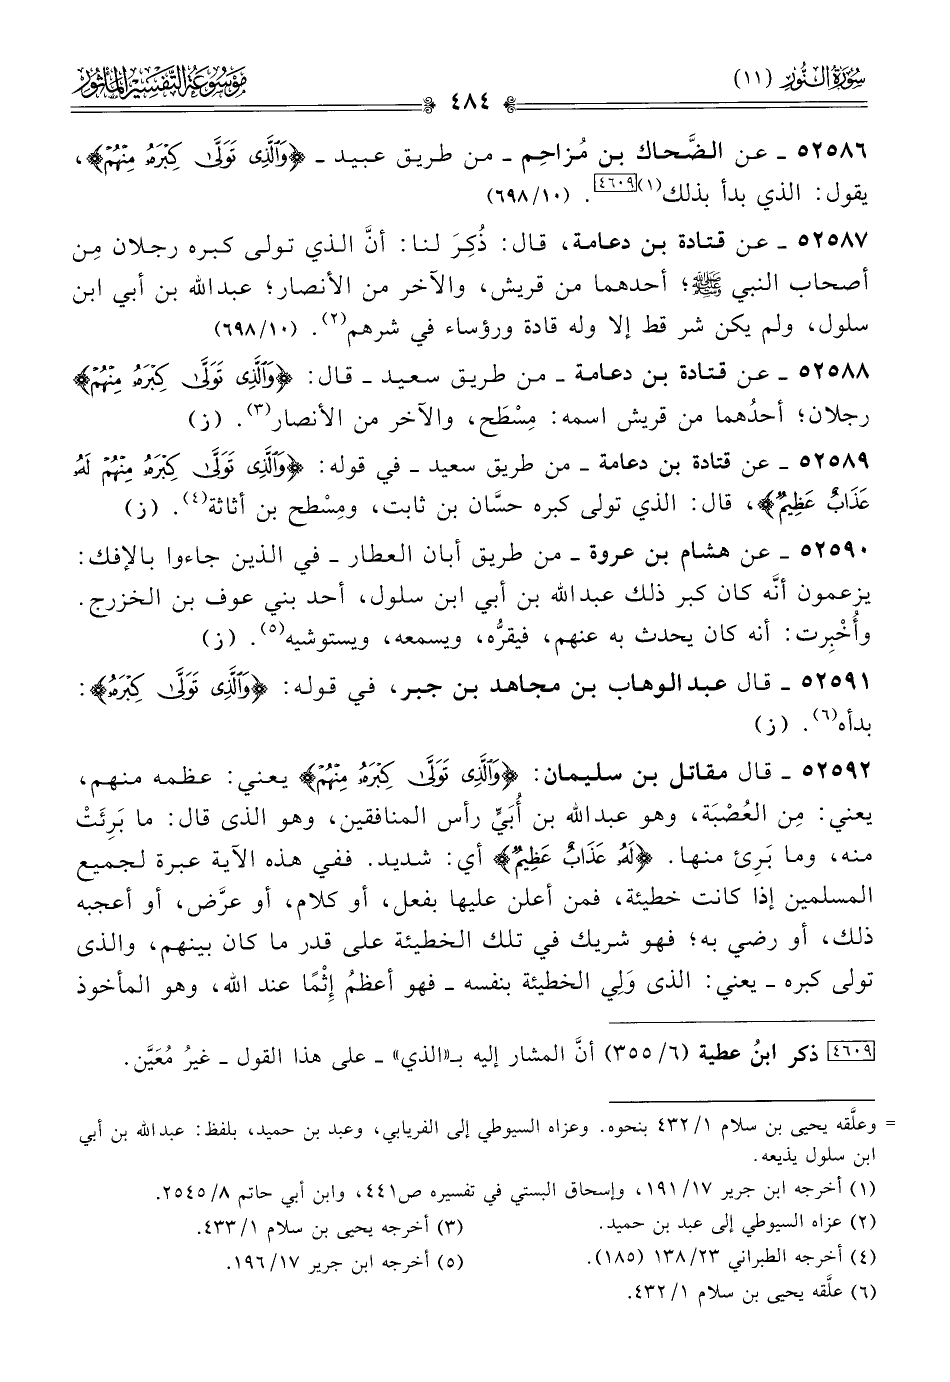 سورة النور (١١)
موسوعة التفسير المأثور
٤٨٤
٥٢٥٨٦ ـ عن الضَّحاك بن مُزاحِم ـ من طريق عبيد ـ ﴿وَٱلَّذِى تَوَلَّىٰ كِبْرَهُۥ مِنْهُمْ﴾،
يقول: الذي بدأ بذلك(١)[٤٦٠٩]. (٦٩٨/١٠)
٥٢٥٨٧ ـ عن قتادة بن دعامة، قال: ذُكِرَ لنا: أنَّ الذي تولى كبره رجلان مِن
أصحاب النبي ﷺ؛ أحدهما من قريش، والآخر من الأنصار؛ عبدالله بن أبي ابن
سلول، ولم يكن شر قط إلا وله قادة ورؤساء في شرهم(٢). (٦٩٨/١٠)
٥٢٥٨٨ ـ عن قتادة بن دعامة ـ من طريق سعيد ـ قال: ﴿وَٱلَّذِى تَوَلَّىٰ كِبْرَهُۥ مِنْهُمْ﴾
رجلان؛ أحدُهما من قريش اسمه: مِسْطَح، والآخر من الأنصار(٣). (ز)
٥٢٥٨٩ ـ عن قتادة بن دعامة ـ من طريق سعيد ـ في قوله: ﴿وَٱلَّذِى تَوَلَّىٰ كِبْرَهُۥ مِنْهُمْ لَهُۥ
عَذَابٌ عَظِيمٌ﴾، قال: الذي تولى كبره حسَّان بن ثابت، ومِسْطح بن أثاثة(٤). (ز)
٥٢٥٩٠ ـ عن هشام بن عروة ـ من طريق أبان العطار ـ في الذين جاءوا بالإفك:
يزعمون أنَّه كان كبر ذلك عبدالله بن أبي ابن سلول، أحد بني عوف بن الخزرج.
وأُخْبِرت: أنه كان يحدث به عنهم، فيقرُّه، ويسمعه، ويستوشيه(٥). (ز)
٥٢٥٩١ ـ قال عبدالوهاب بن مجاهد بن جبر، في قوله: ﴿وَٱلَّذِى تَوَلَّىٰ كِبْرَهُۥ﴾:
بدأه(٦). (ز)
٥٢٥٩٢ ـ قال مقاتل بن سليمان: ﴿وَٱلَّذِى تَوَلَّىٰ كِبْرَهُۥ مِنْهُمْ﴾ يعني: عظمه منهم،
يعني: مِن العُصْبَة، وهو عبدالله بن أُبَيٍّ رأس المنافقين، وهو الذى قال: ما بَرِئَتْ
منه، وما بَرِئ منها. ﴿لَهُۥ عَذَابٌ عَظِيمٌ﴾ أي: شديد. ففي هذه الآية عبرة لجميع
المسلمين إذا كانت خطيئة، فمن أعلن عليها بفعل، أو كلام، أو عرَّض، أو أعجبه
ذلك، أو رضي به؛ فهو شريك في تلك الخطيئة على قدر ما كان بينهم، والذى
تولى كبره ـ يعني: الذى وَلِي الخطيئة بنفسه ـ فهو أعظمُ إِثْمًا عند الله، وهو المأخوذ
[٤٦٠٩] ذكر ابنُ عطية (٦/ ٣٥٥) أنَّ المشار إليه بـ«الذي» ـ على هذا القول ـ غيرُ مُعَيَّن.
= وعلَّقه يحيى بن سلام ١/ ٤٣٢ بنحوه. وعزاه السيوطي إلى الفريابي، وعبد بن حميد، بلفظ: عبدالله بن أبي
ابن سلول يذيعه.
(١) أخرجه ابن جرير ١٧/ ١٩١، وإسحاق البستي في تفسيره ص٤٤١، وابن أبي حاتم ٨/ ٢٥٤٥.
(٢) عزاه السيوطي إلى عبد بن حميد.
(٣) أخرجه يحيى بن سلام ١/ ٤٣٣.
(٤) أخرجه الطبراني ٢٣/ ١٣٨ (١٨٥).
(٥) أخرجه ابن جرير ١٧/ ١٩٦.
(٦) علَّقه يحيى بن سلام ١/ ٤٣٢.